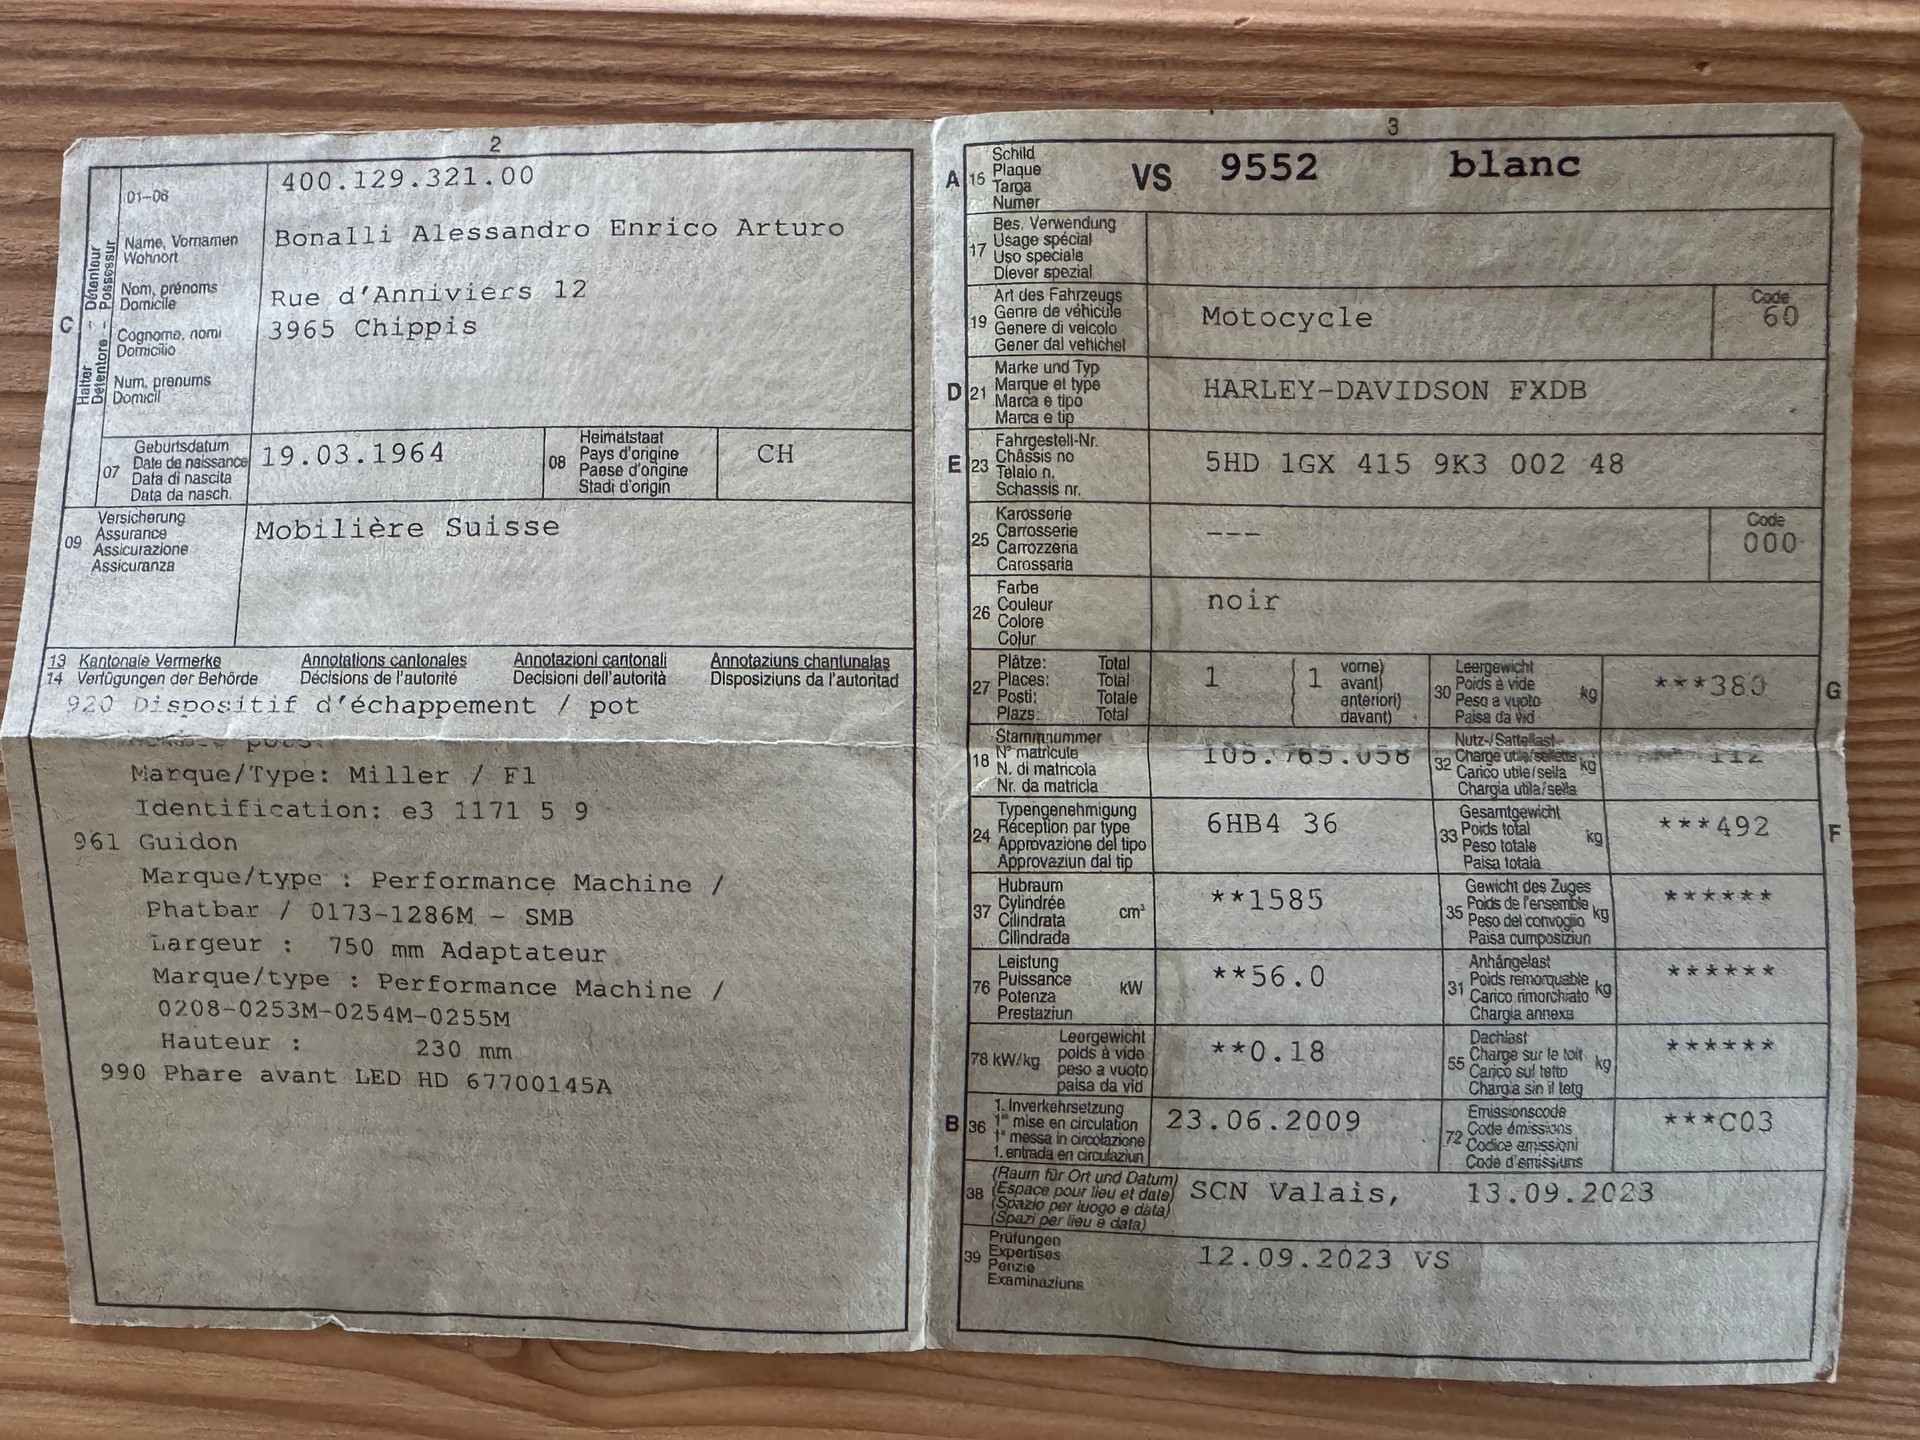 2
01-06
400.129.321.00
C
Halter - Détenteur
Détentore - Possessur
Name, Vornamen
Wohnort
Bonalli Alessandro Enrico Arturo
Nom, prénoms
Domicile
Rue d'Anniviers 12
3965 Chippis
Cognome, nomi
Domicilio
Num, prenums
Domicil
07
Geburtsdatum
Date de naissance
Data di nascita
Data da nasch.
19.03.1964
08
Heimatstaat
Pays d'origine
Paese d'origine
Stadi d'origin
CH
09
Versicherung
Assurance
Assicurazione
Assicuranza
Mobilière Suisse
13 Kantonale Vermerke Annotations cantonales Annotazioni cantonali Annotaziuns chantunalas
14 Verfügungen der Behörde Décisions de l'autorité Decisioni dell'autorità Disposiziuns da l'autoritad
920 Dispositif d'échappement / pot
Marque/Type: Miller / F1
Identification: e3 1171 5 9
961 Guidon
Marque/type : Performance Machine /
Phatbar / 0173-1286M - SMB
Largeur : 750 mm Adaptateur
Marque/type : Performance Machine /
0208-0253M-0254M-0255M
Hauteur : 230 mm
990 Phare avant LED HD 67700145A
3
A
16
Schild
Plaque
Targa
Numer
VS 9552 blanc
17
Bes. Verwendung
Usage spécial
Uso speciale
Diever spezial
19
Art des Fahrzeugs
Genre de véhicule
Genere di veicolo
Gener dal vehichel
Motocycle
Code
60
D
21
Marke und Typ
Marque et type
Marca e tipo
Marca e tip
HARLEY-DAVIDSON FXDB
E
23
Fahrgestell-Nr.
Châssis no
Telaio n.
Schassis nr.
5HD 1GX 415 9K3 002 48
25
Karosserie
Carrosserie
Carrozzeria
Carossaria
---
Code
000
26
Farbe
Couleur
Colore
Colur
noir
27
Plätze: Total
Places: Total
Posti: Totale
Plazs: Total
1
1
vorne)
avant)
anteriori)
davant)
30
Leergewicht
Poids à vide
Peso a vuoto
Paisa da vid
kg
***380
G
18
Stammnummer
N° matricule
N. di matricola
Nr. da matricla
105.765.058
32
Nutz-/Sattellast
Charge utile/sellette
Carico utile/sella
Chargia utila/sella
kg
112
24
Typengenehmigung
Réception par type
Approvazione del tipo
Approvaziun dal tip
6HB4 36
33
Gesamtgewicht
Poids total
Peso totale
Paisa totala
kg
***492
F
37
Hubraum
Cylindrée
Cilindrata
Cilindrada
cm³
**1585
35
Gewicht des Zuges
Poids de l'ensemble
Peso del convoglio
Paisa cumposiziun
kg
******
76
Leistung
Puissance
Potenza
Prestaziun
kW
**56.0
31
Anhängelast
Poids remorquable
Carico rimorchiato
Chargia annexa
kg
******
78 kW/kg
Leergewicht
poids à vide
peso a vuoto
paisa da vid
**0.18
55
Dachlast
Charge sur le toit
Carico sul tetto
Chargia sin il tetg
kg
******
B
36
1. Inverkehrsetzung
1re mise en circulation
1a messa in circolazione
1. entrada en circulaziun
23.06.2009
72
Emissionscode
Code émissions
Codice emissioni
Code d'emissiuns
***C03
38
(Raum für Ort und Datum)
(Espace pour lieu et date)
(Spazio per luogo e data)
(Spazi per lieu e data)
SCN Valais, 13.09.2023
39
Prüfungen
Expertises
Perizie
Examinaziuns
12.09.2023 VS